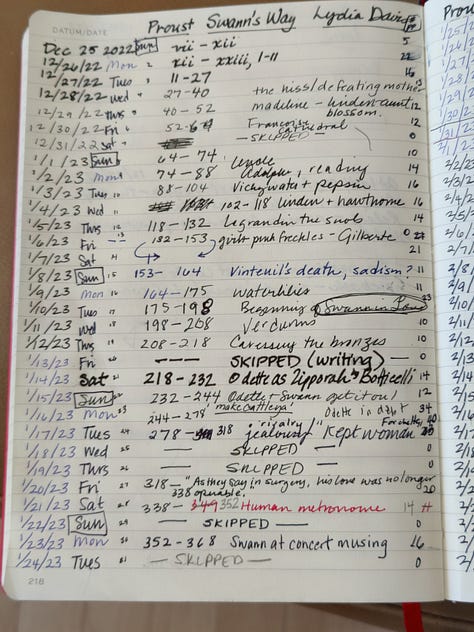 DATUM/DATE
Proust Swann's Way Lydia Davis
Dec 25 2022 Sun vii - xii 5
12/26/22 Mon xii - xxiii, 1-11 22
12/27/22 Tues 11-27 16
12/28/22 Wed 27-40 the kiss/defeating mother 13
12/29/22 Thrs 40-52 madeline - linden aunt 12
blossom.
12/30/22 Fri 52-64 Francoise 12
cathedral
12/31/22 Sat - SKIPPED - 0
1/1/23 Sun 64-74 Uncle 10
1/2/23 Mon 74-88 Adolphe, reading 14
1/3/23 Tues 88-104 Vichy water + pepsin 16
1/4/23 Wed 102-118 linden + hawthorne 16
1/5/23 Thrs 12 118-132 Legrandin the snob 14
1/6/23 Fri 132-153 girl pink freckles - Gilberte 0
1/7/23 Sat 14 21
1/8/23 Sun 15 153-164 Vinteuil's death, sadism? 11
1/9/23 Mon 16 164-175 Waterlilies 11
1/10/23 Tues 17 175-198 Beginning Swann in Love 23
1/11/23 Wed 18 198-208 Verdurins 10
1/12/23 Thrs 208-218 Caressing the bronzes 10
1/13/23 Fri SKIPPED (writing) 0
1/14/23 Sat 218-232 Odette as Zipporah Botticelli 14
1/15/23 Sun 232-244 Odette + Swann get it on! 12
"make cattleya"
1/16/23 Mon 244-278 Odette in day 34
1/17/23 Tues 24 278-318 "rivalry" jealousy Kept woman Forcheville 40
1/18/23 Wed 25 - SKIPPED - 0
1/19/23 Thrs 26 - SKIPPED - 0
1/20/23 Fri 27 318- "As they say in surgery, his love was no longer
338 operable. 20
1/21/23 Sat 28 338-352 Human metronome 14
1/22/23 Sun 29 - SKIPPED - 0
1/23/23 Mon 30 352-368 Swann at concert musing 16
1/24/23 Tues 31 - SKIPPED - 0
218